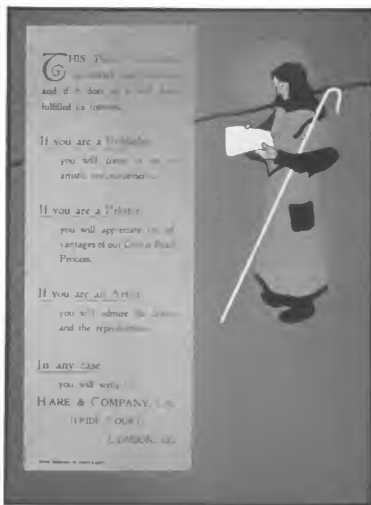 THIS
and if it does so it will have
fulfilled its mission.
If you are a Publisher
you will come to us for
artistic announcements.
If you are a Printer
you will appreciate the ad-
vantages of our
Process.
If you are an Artist
you will admire the
and the reproduction.
In any case
you will write to
HARE & COMPANY, Ltd.
BRIDE COURT,
LONDON, EC.